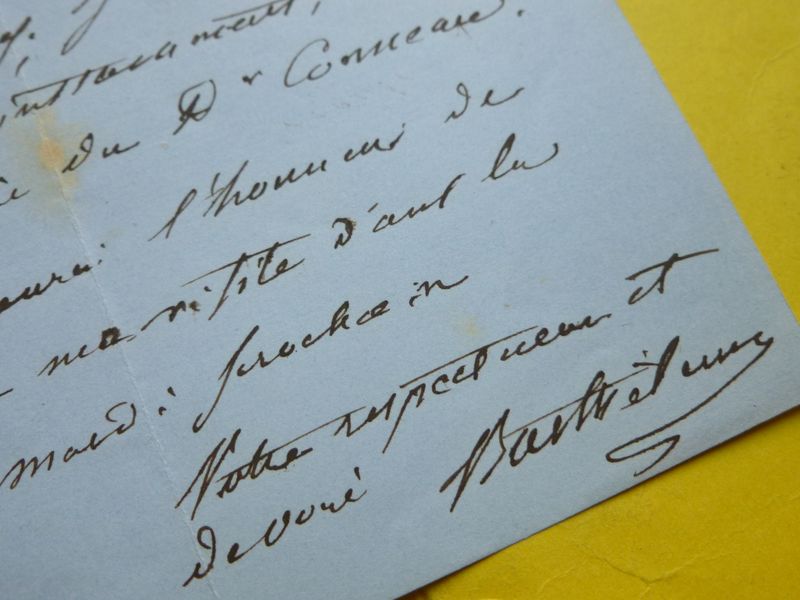 instamment,
du Dr Conneau.
l'honneur de
ma visite d'ant la
mardi prochain
Votre respectueux et
devoué Barthélemy